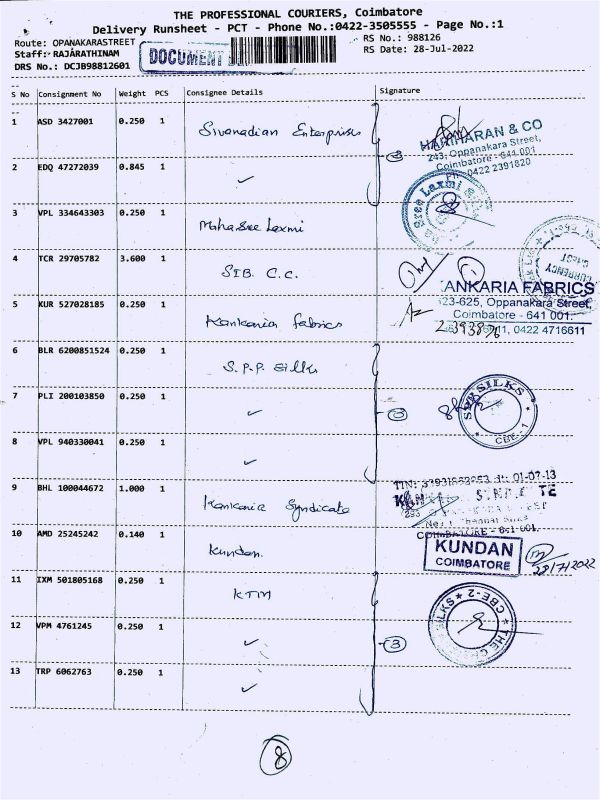 THE PROFESSIONAL COURIERS, Coimbatore
Delivery Runsheet - PCT - Phone No.:0422-3505555 - Page No.:1
Route: OPANAKARASTREET RS No.: 988126
Staff: RAJARATHINAM RS Date: 28-Jul-2022
DRS No.: DCJB98812601
DOCUMENT
S No Consignment No Weight PCS Consignee Details Signature
1 ASD 3427001 0.250 1 Sivanadian Enterprises
HARIHARAN & CO
243, Oppanakara Street,
Coimbatore - 641 001
Ph: 0422 2391820
2 EDQ 47272039 0.845 1 ✓
3 VPL 334643303 0.250 1 Mahasree Laxmi
Sree Laxmi
4 TCR 29705782 3.600 1 SIB. C.C.
CURRENCY
CHEST
5 KUR 527028185 0.250 1 Kankaria fabrics
ANKARIA FABRICS
23-625, Oppanakara Street,
Coimbatore - 641 001.
11, 0422 4716611
6 BLR 6200851524 0.250 1 S.P.P. Silks
7 PLI 200103850 0.250 1 ✓
SILKS
CBE - 1
8 VPL 940330041 0.250 1 ✓
9 BHL 100044672 1.000 1 Kankaria Syndicate
01-07-13
COIMBATORE - 641 001.
10 AMD 25245242 0.140 1 Kundan.
KUNDAN
COIMBATORE
28/7/2022
11 IXM 501805168 0.250 1 KTM
12 VPM 4761245 0.250 1 ✓ 3
SILKS ★ CBE-2 ★ THE
13 TRP 6062763 0.250 1 ✓
8